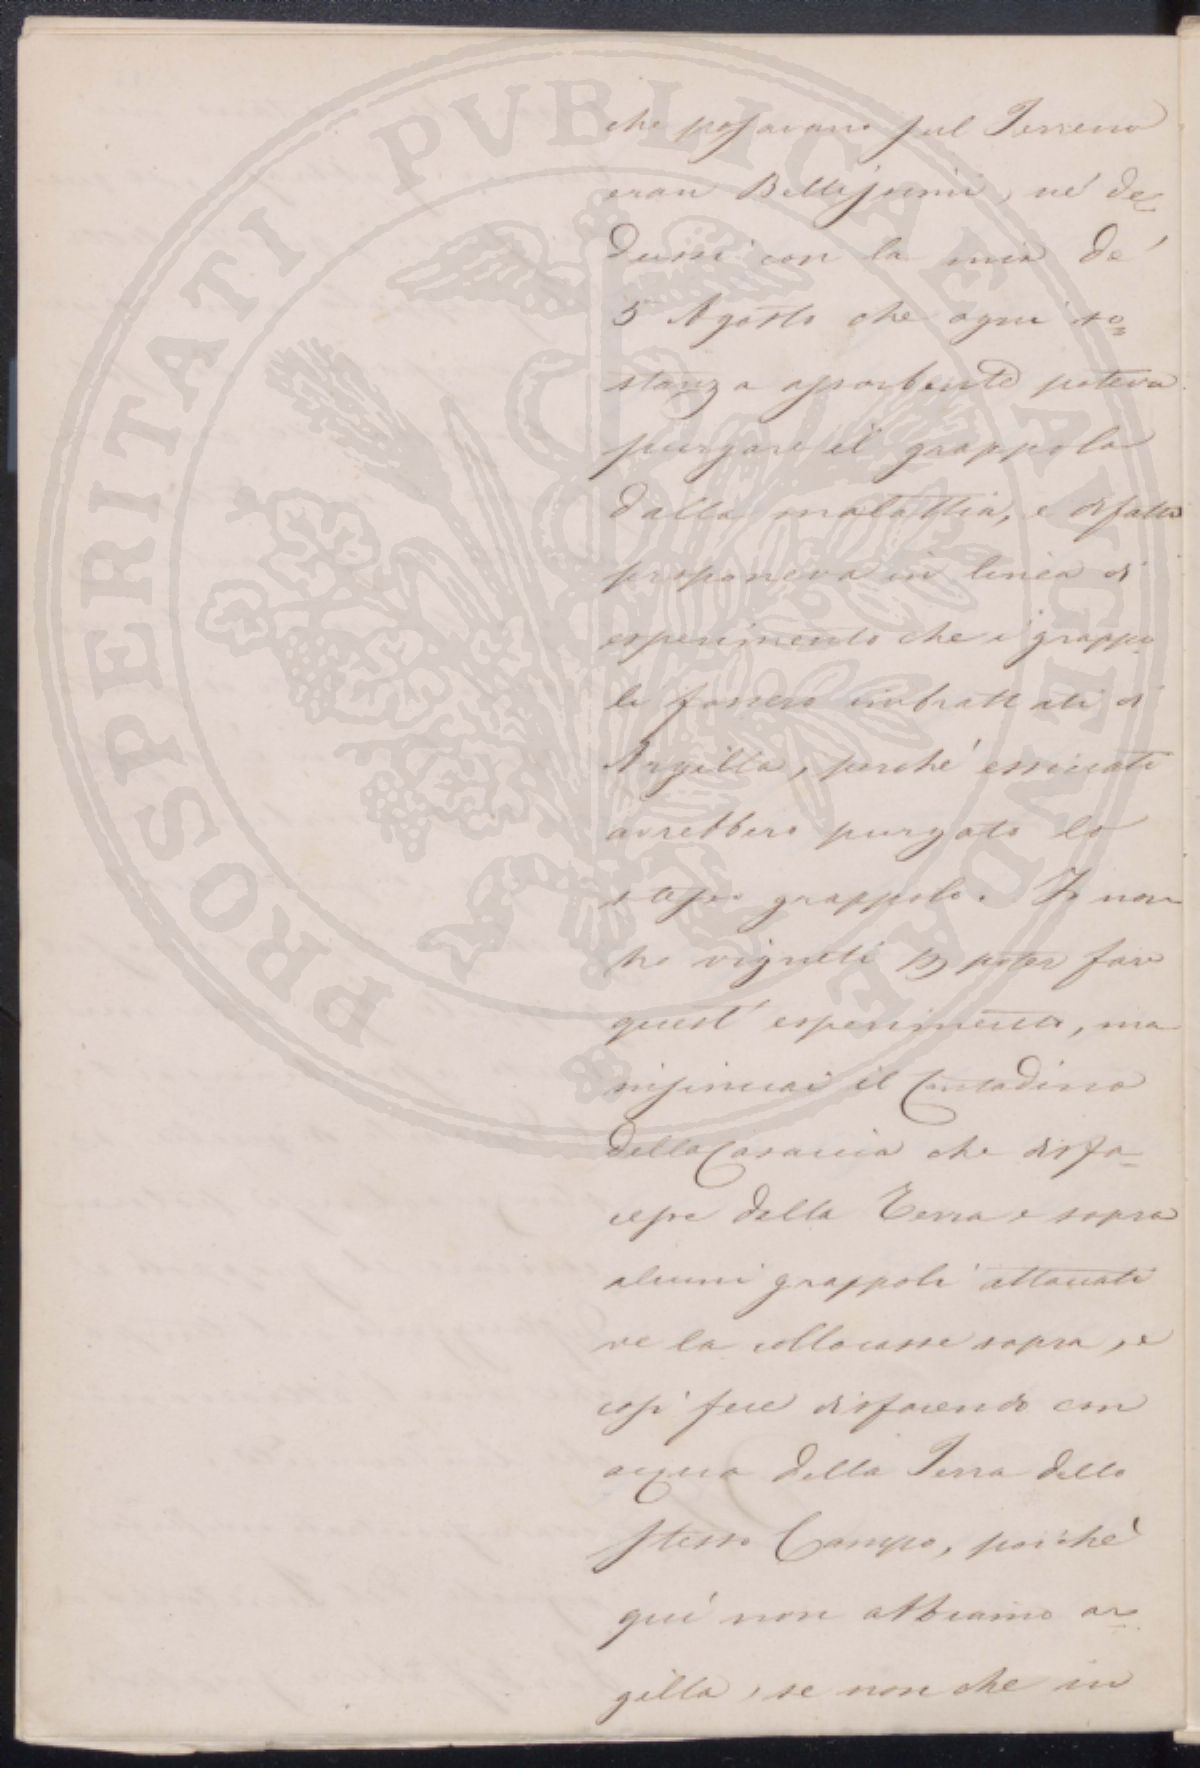 PROSPERITATI PVBLICAE AVGENDAE
che posavano sul Terreno
eran Bellissimi, ne de=
dussi con la mia de'
5 Agosto che ogni so=
stanza assorbente poteva
purgare il grappolo
dalla malattia, e difatti
proponeva in linea di
esperimento che i grappo
li fossero imbrattati di
Argilla, perché essiccati
avrebbero purgato lo
stesso grappolo. Io non
ho vigneti p poter fare
quest' esperimento, ma
insinuai il Contadino
della Casaccia che disfa=
cesse della Terra e sopra
alcuni grappoli attaccati
ve la collocasse sopra, e
così fece disfacendo con
acqua della Terra dello
stesso Campo, poiché
quì non abbiamo ar=
gilla, se non che in